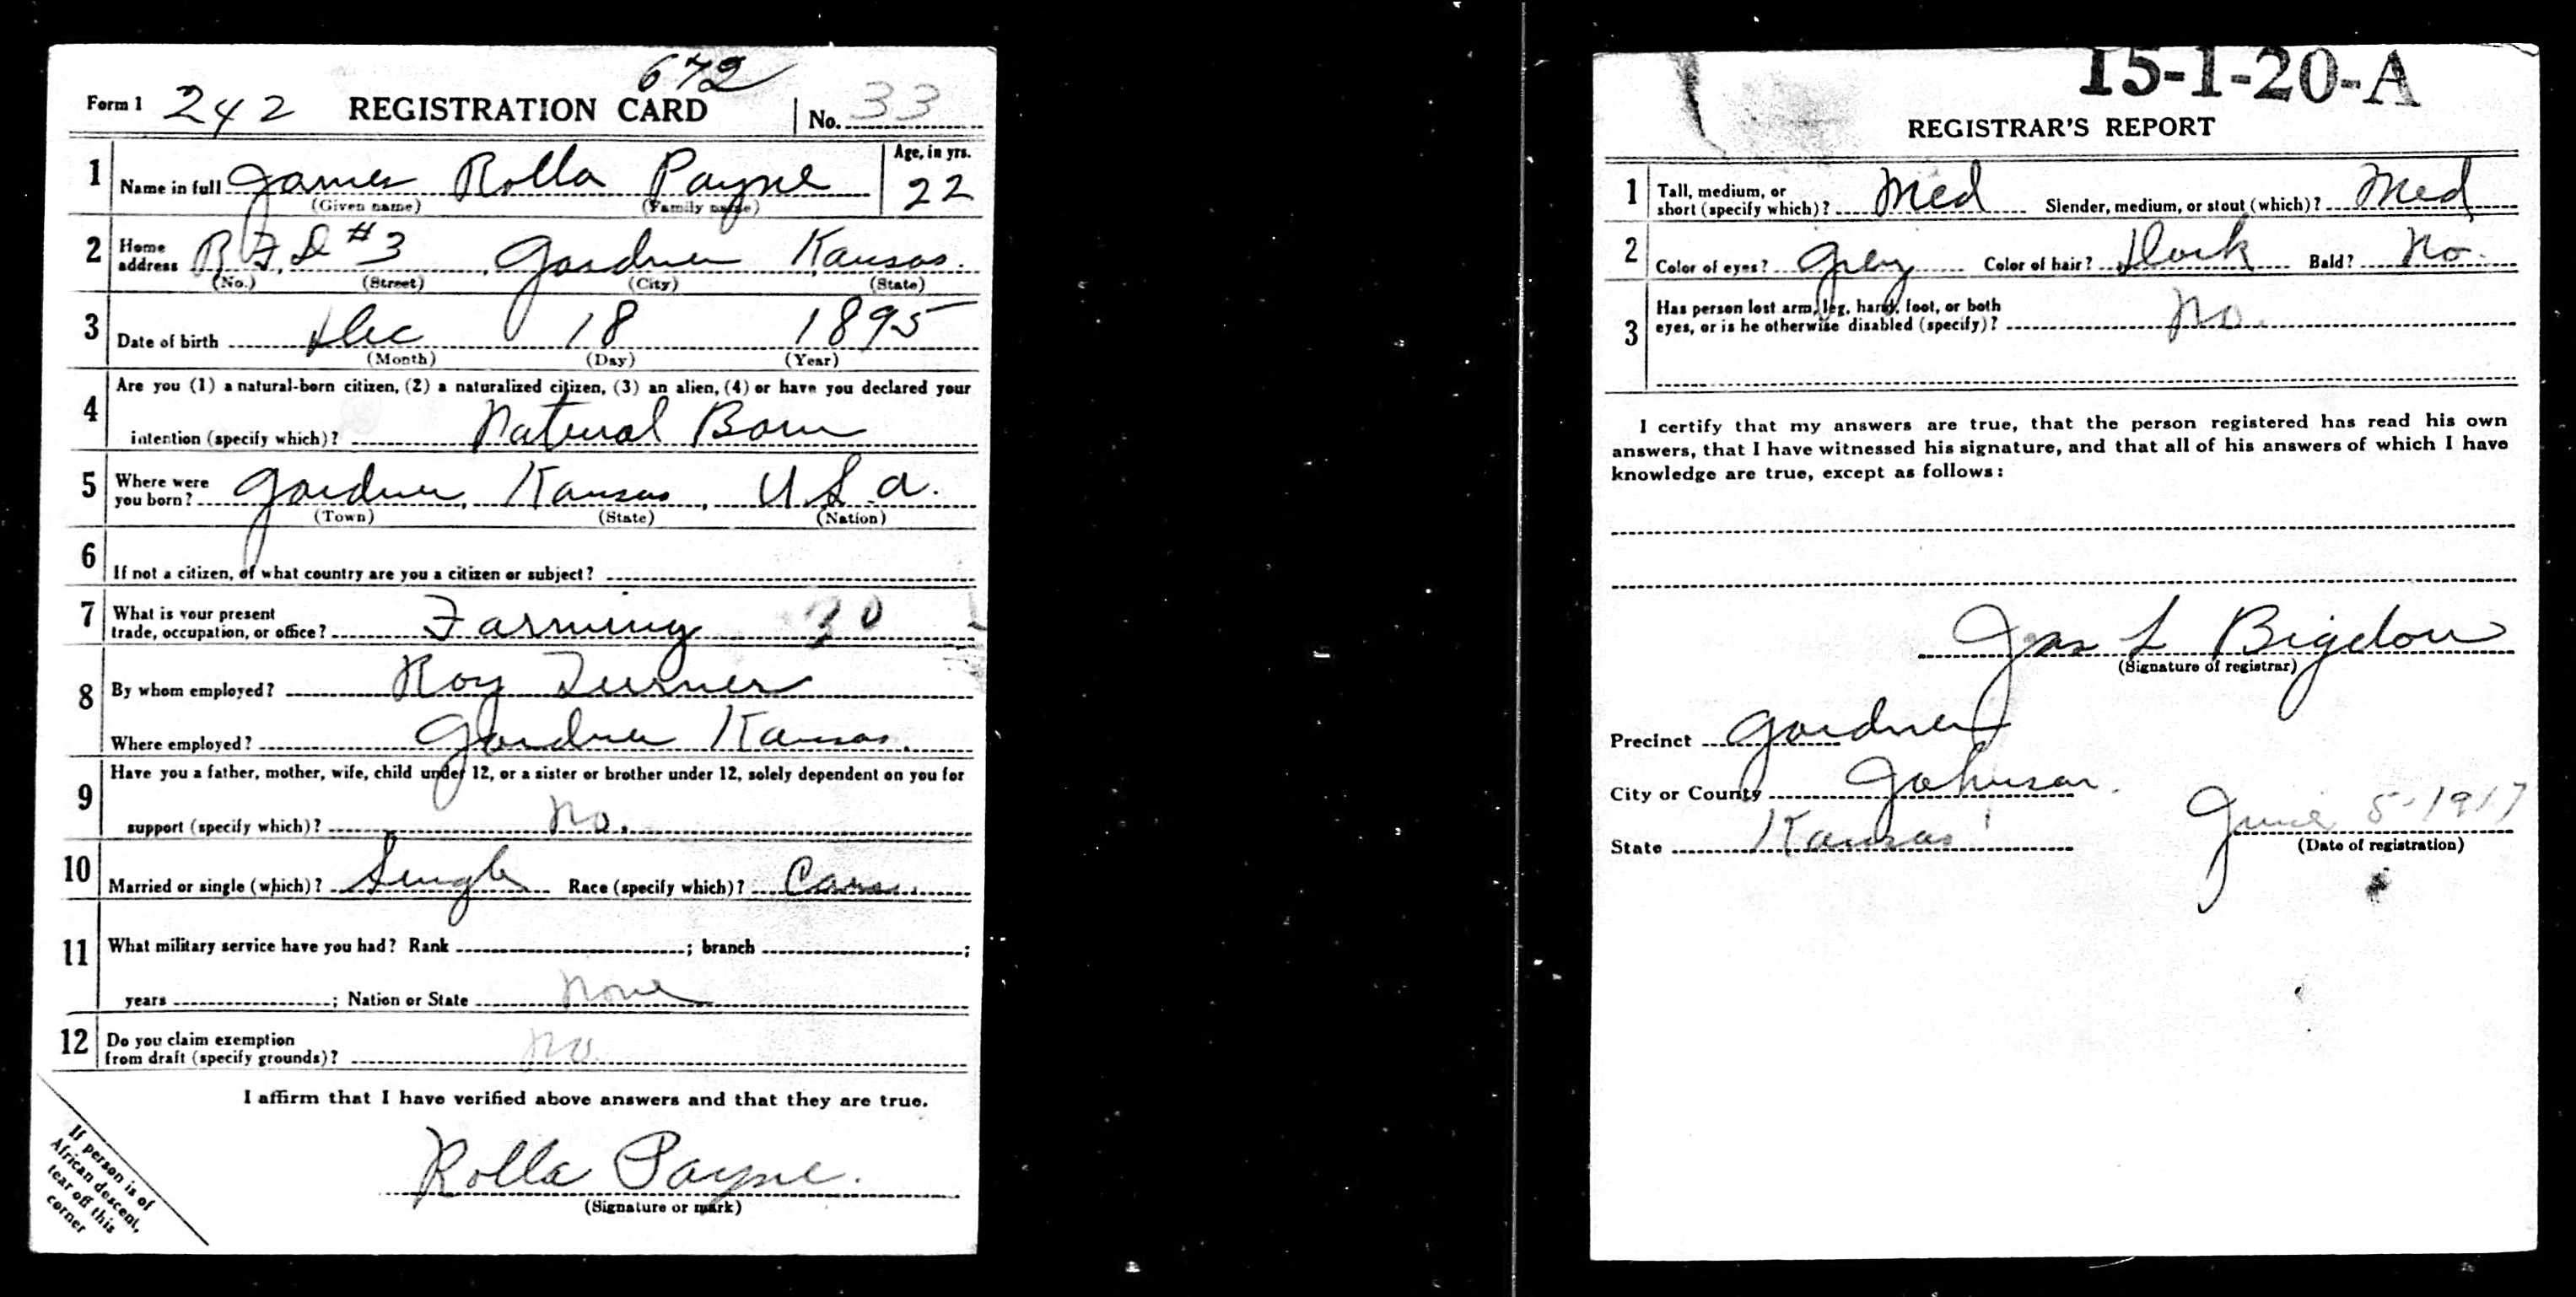 672
Form 1 242 REGISTRATION CARD No. 33
1 Name in full James Rolla Payne Age, in yrs. 22
(Given name) (Family name)
2 Home address R.F.D #3, Gardner Kansas.
(No.) (Street) (City) (State)
3 Date of birth Dec 18 1895
(Month) (Day) (Year)
4 Are you (1) a natural-born citizen, (2) a naturalized citizen, (3) an alien, (4) or have you declared your
intention (specify which)? Natural Born
5 Where were you born? Gardner, Kansas, U.S.a.
(Town) (State) (Nation)
6 If not a citizen, of what country are you a citizen or subject?
7 What is your present
trade, occupation, or office? Farming 30
8 By whom employed? Roy Turner
Where employed? Gardner Kansas.
9 Have you a father, mother, wife, child under 12, or a sister or brother under 12, solely dependent on you for
support (specify which)? No.
10 Married or single (which)? Single Race (specify which)? Cau.
11 What military service have you had? Rank ; branch ;
years ; Nation or State None
12 Do you claim exemption
from draft (specify grounds)? No
I affirm that I have verified above answers and that they are true.
Rolla Payne.
(Signature or mark)
If person is of
African descent,
tear off this
corner
15-1-20-A
REGISTRAR'S REPORT
1 Tall, medium, or
short (specify which)? Med Slender, medium, or stout (which)? Med
2 Color of eyes? Grey Color of hair? Dark Bald? No.
3 Has person lost arm, leg, hand, foot, or both
eyes, or is he otherwise disabled (specify)? No.
I certify that my answers are true, that the person registered has read his own
answers, that I have witnessed his signature, and that all of his answers of which I have
knowledge are true, except as follows:
Jas L Bigelow
(Signature of registrar)
Precinct Gardner
City or County Johnson.
State Kansas June 5-1917
(Date of registration)